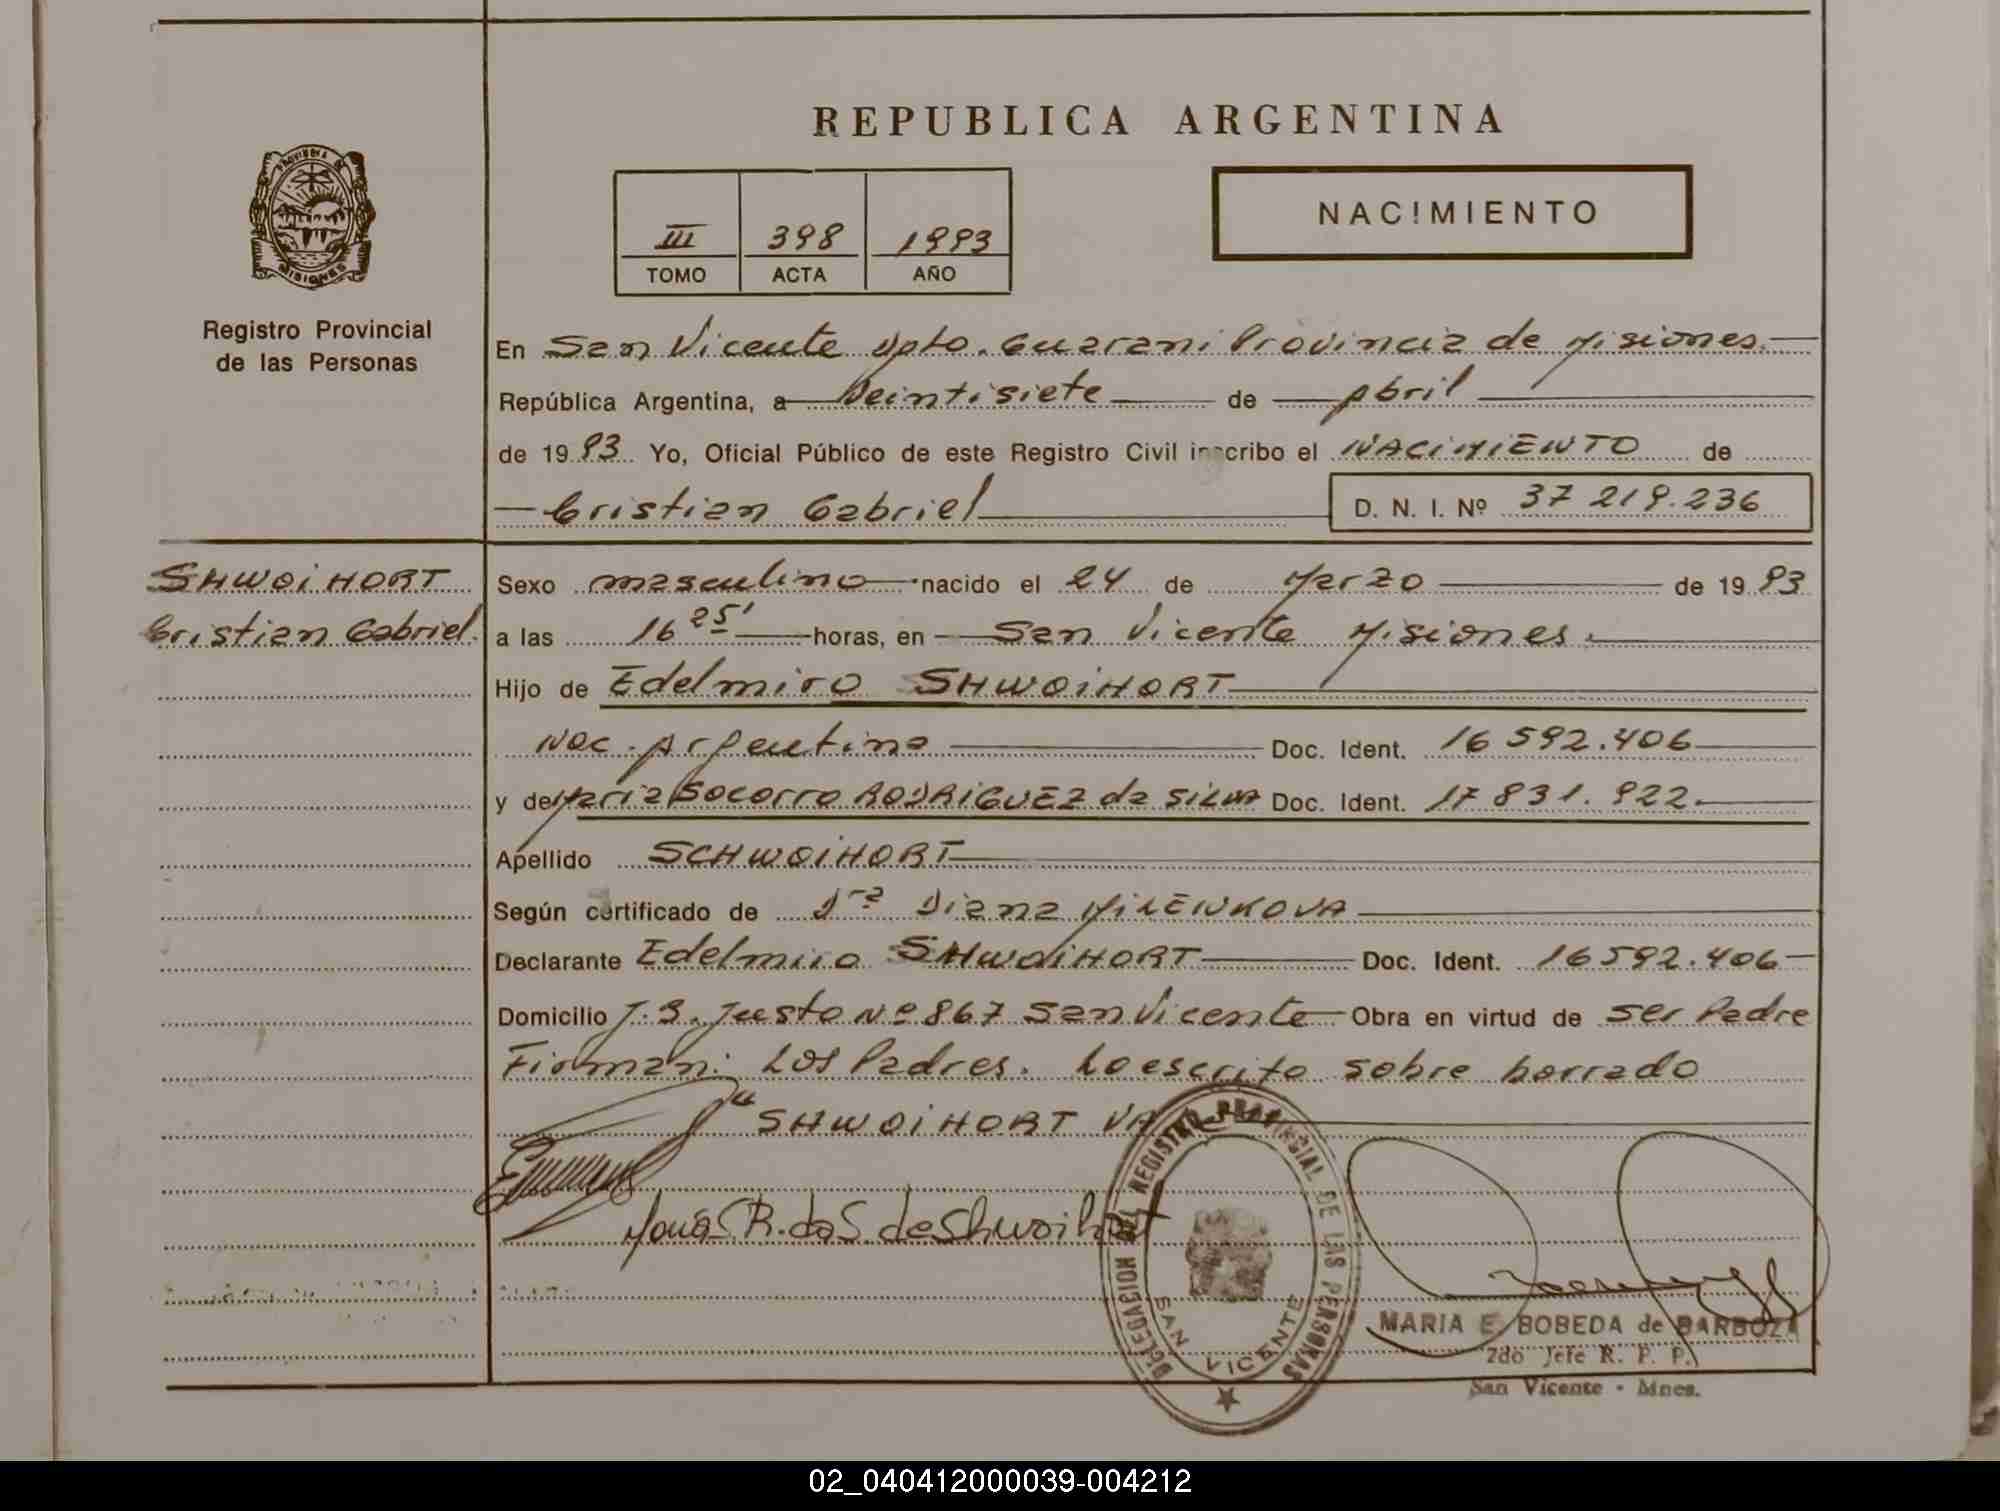 REPUBLICA ARGENTINA
PROVINCIA DE
MISIONES
Registro Provincial
de las Personas
III 398 1993
TOMO ACTA AÑO
NACIMIENTO
En San Vicente Dpto. Guarani Provincia de Misiones.
República Argentina, a Veintisiete de Abril
de 1993 Yo, Oficial Público de este Registro Civil inscribo el NACIMIENTO de
Cristian Gabriel D. N. I. Nº 37 219.236
SHWOIHORT
Cristian Gabriel.
Sexo masculino nacido el 24 de Marzo de 1993
a las 16 25' horas, en San Vicente Misiones.
Hijo de Edelmiro SHWOIHORT
Nac. Argentina Doc. Ident. 16 592.406
y de Maria Socorro RODRIGUEZ da SILVA Doc. Ident. 17 831.922.
Apellido SCHWOIHORT
Según certificado de Dra Diana MILENKOVA
Declarante Edelmiro SHWOIHORT Doc. Ident. 16592.406
Domicilio J. B. Justo Nº 867 San Vicente Obra en virtud de ser Padre
Firman: Los Padres. Lo escrito sobre borrado
"SHWOIHORT VA
R. da S. de Shwoihort
DELEGACION DEL REGISTRO PROVINCIAL DE LAS PERSONAS
SAN VICENTE
MARIA E. BOBEDA de BARBOZA
2do Jefe R. P. P.
San Vicente - Mnes.
02_040412000039-004212